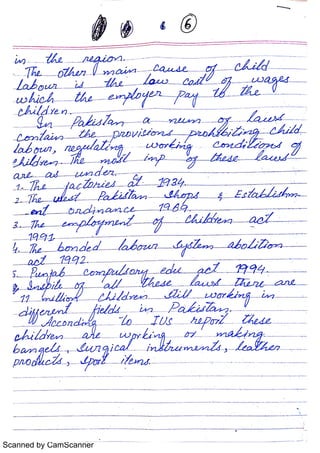 6
in the region.
The other main cause of child
labour is the low cost of wages
which the employer pay to the
children.
In Pakistan a num of laws
contain the provisions prohibiting child
labour, regulating working conditions of
children. The most imp of these laws
are as under.
1. The factories act 1934.
2. The West Pakistan Shops & Establishm-
-ent ordinance 1969.
3. The employment of children act
1991
4. The bonded labour system abolition
act 1992.
5. Punjab compulsory edu act 1994.
Inspite of all these laws there are
11 million children still working in
different fields in Pakistan.
According to IUs report these
children are working or making
bangels, surgical instruments, leather
products, sport items.
Scanned by CamScanner